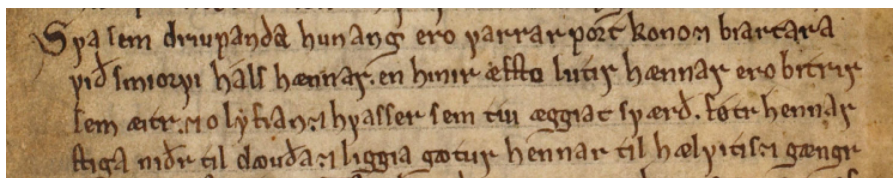 Sva sem driupanda hunang ero varrar port kono ⁊ biartara
við smiorvi hals hænnar. en hinir æfsto lutir hænnar ero bitrir
sem æitr. ⁊ olyfian. ⁊ hvasser sem tvi æggiat sværð. føtr hennar
stiga niðr til douða. ⁊ liggia gotur hennar til hælvitis. ⁊ gængr